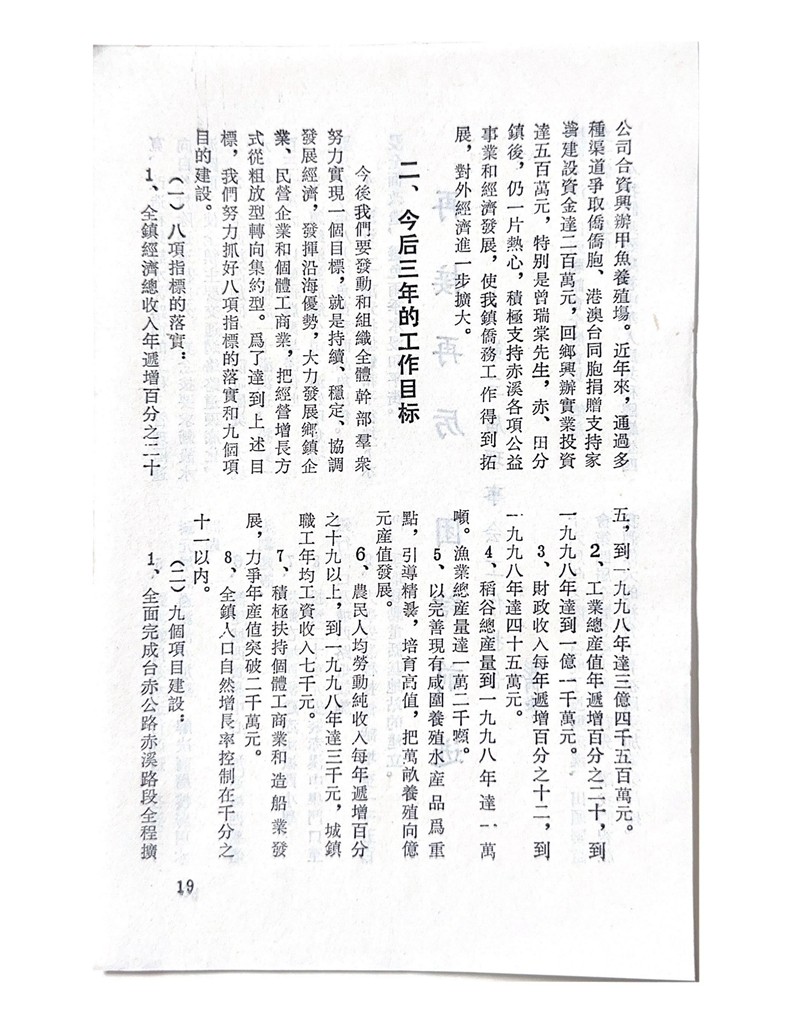 公司合資興辦甲魚養殖場。近年來，通過多
種渠道爭取僑僑胞、港澳台同胞捐贈支持家
鄉建設資金達二百萬元，回鄉興辦實業投資
達五百萬元，特別是曾瑞棠先生，赤、田分
鎮後，仍一片熱心，積極支持赤溪各項公益
事業和經濟發展，使我鎮僑務工作得到拓
展，對外經濟進一步擴大。
二、今后三年的工作目标
今後我們要發動和組織全體幹部羣衆
努力實現一個目標，就是持續、穩定、協調
發展經濟，發揮沿海優勢，大力發展鄉鎮企
業、民營企業和個體工商業，把經營增長方
式從粗放型轉向集約型。爲了達到上述目
標，我們努力抓好八項指標的落實和九個項
目的建設。
（一）八項指標的落實：
1、全鎮經濟總收入年遞增百分之二十
五，到一九九八年達三億四千五百萬元。
2、工業總産值年遞增百分之二十，到
一九九八年達到一億一千萬元。
3、財政收入每年遞增百分之十二，到
一九九八年達四十五萬元。
4、稻谷總産量到一九九八年達一萬
噸。漁業總産量達一萬二千噸。
5、以完善現有咸圍養殖水産品爲重
點，引導精養，培育高值，把萬畝養殖向億
元産值發展。
6、農民人均勞動純收入每年遞增百分
之十九以上，到一九九八年達三千元，城鎮
職工年均工資收入七千元。
7、積極扶持個體工商業和造船業發
展，力爭年産值突破二千萬元。
8、全鎮人口自然增長率控制在千分之
十一以内。
（二）九個項目建設：
1、全面完成台赤公路赤溪路段全程擴
19